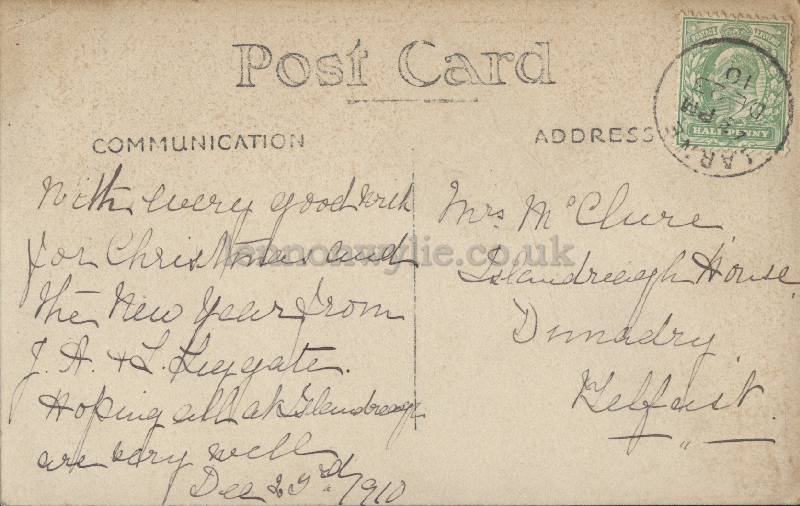 Post Card
COMMUNICATION
ADDRESS
POSTAGE REVENUE
HALFPENNY
LARNE
PM
DE
10
With every good wish
for Christmas and
the New Year from
J. A. & L. Leggate.
Hoping all at Islandreagh
are very well
Dec 23rd 1910
Mrs McClure
Islandreagh House
Dunadry
Belfast.
lennonwylie.co.uk